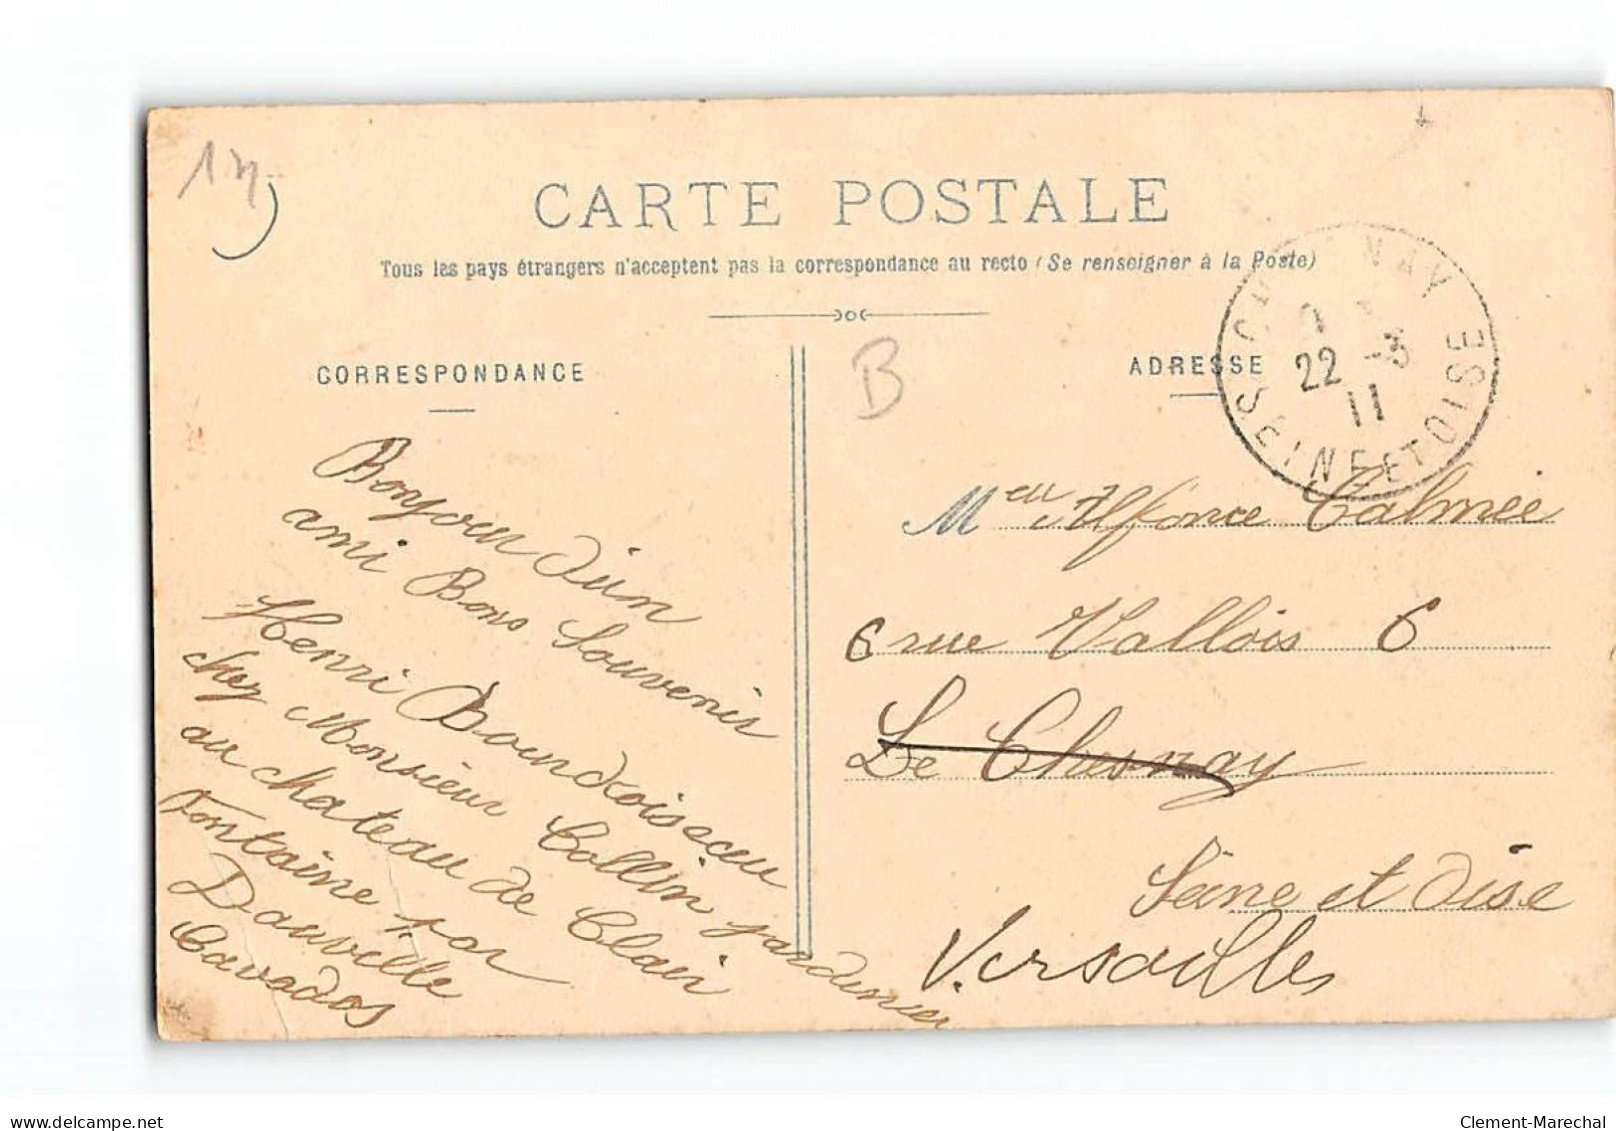 CARTE POSTALE
Tous les pays étrangers n'acceptent pas la correspondance au recto (Se renseigner à la Poste)
CORRESPONDANCE
ADRESSE
B
22 -3
11
SEINE ET OISE
Bonjour d'un
ami Bons Souvenir
Henri Bourdoiseau
chez Monsieur Collin jardinier
au chateau de Clair
Fontaine par
Dauville
Cavados
Meur Alfonce Calmée
6 rue Vallois 6
Le Chesnay
Seine et Oise
Versailles
delcampe.net
Clement-Marechal